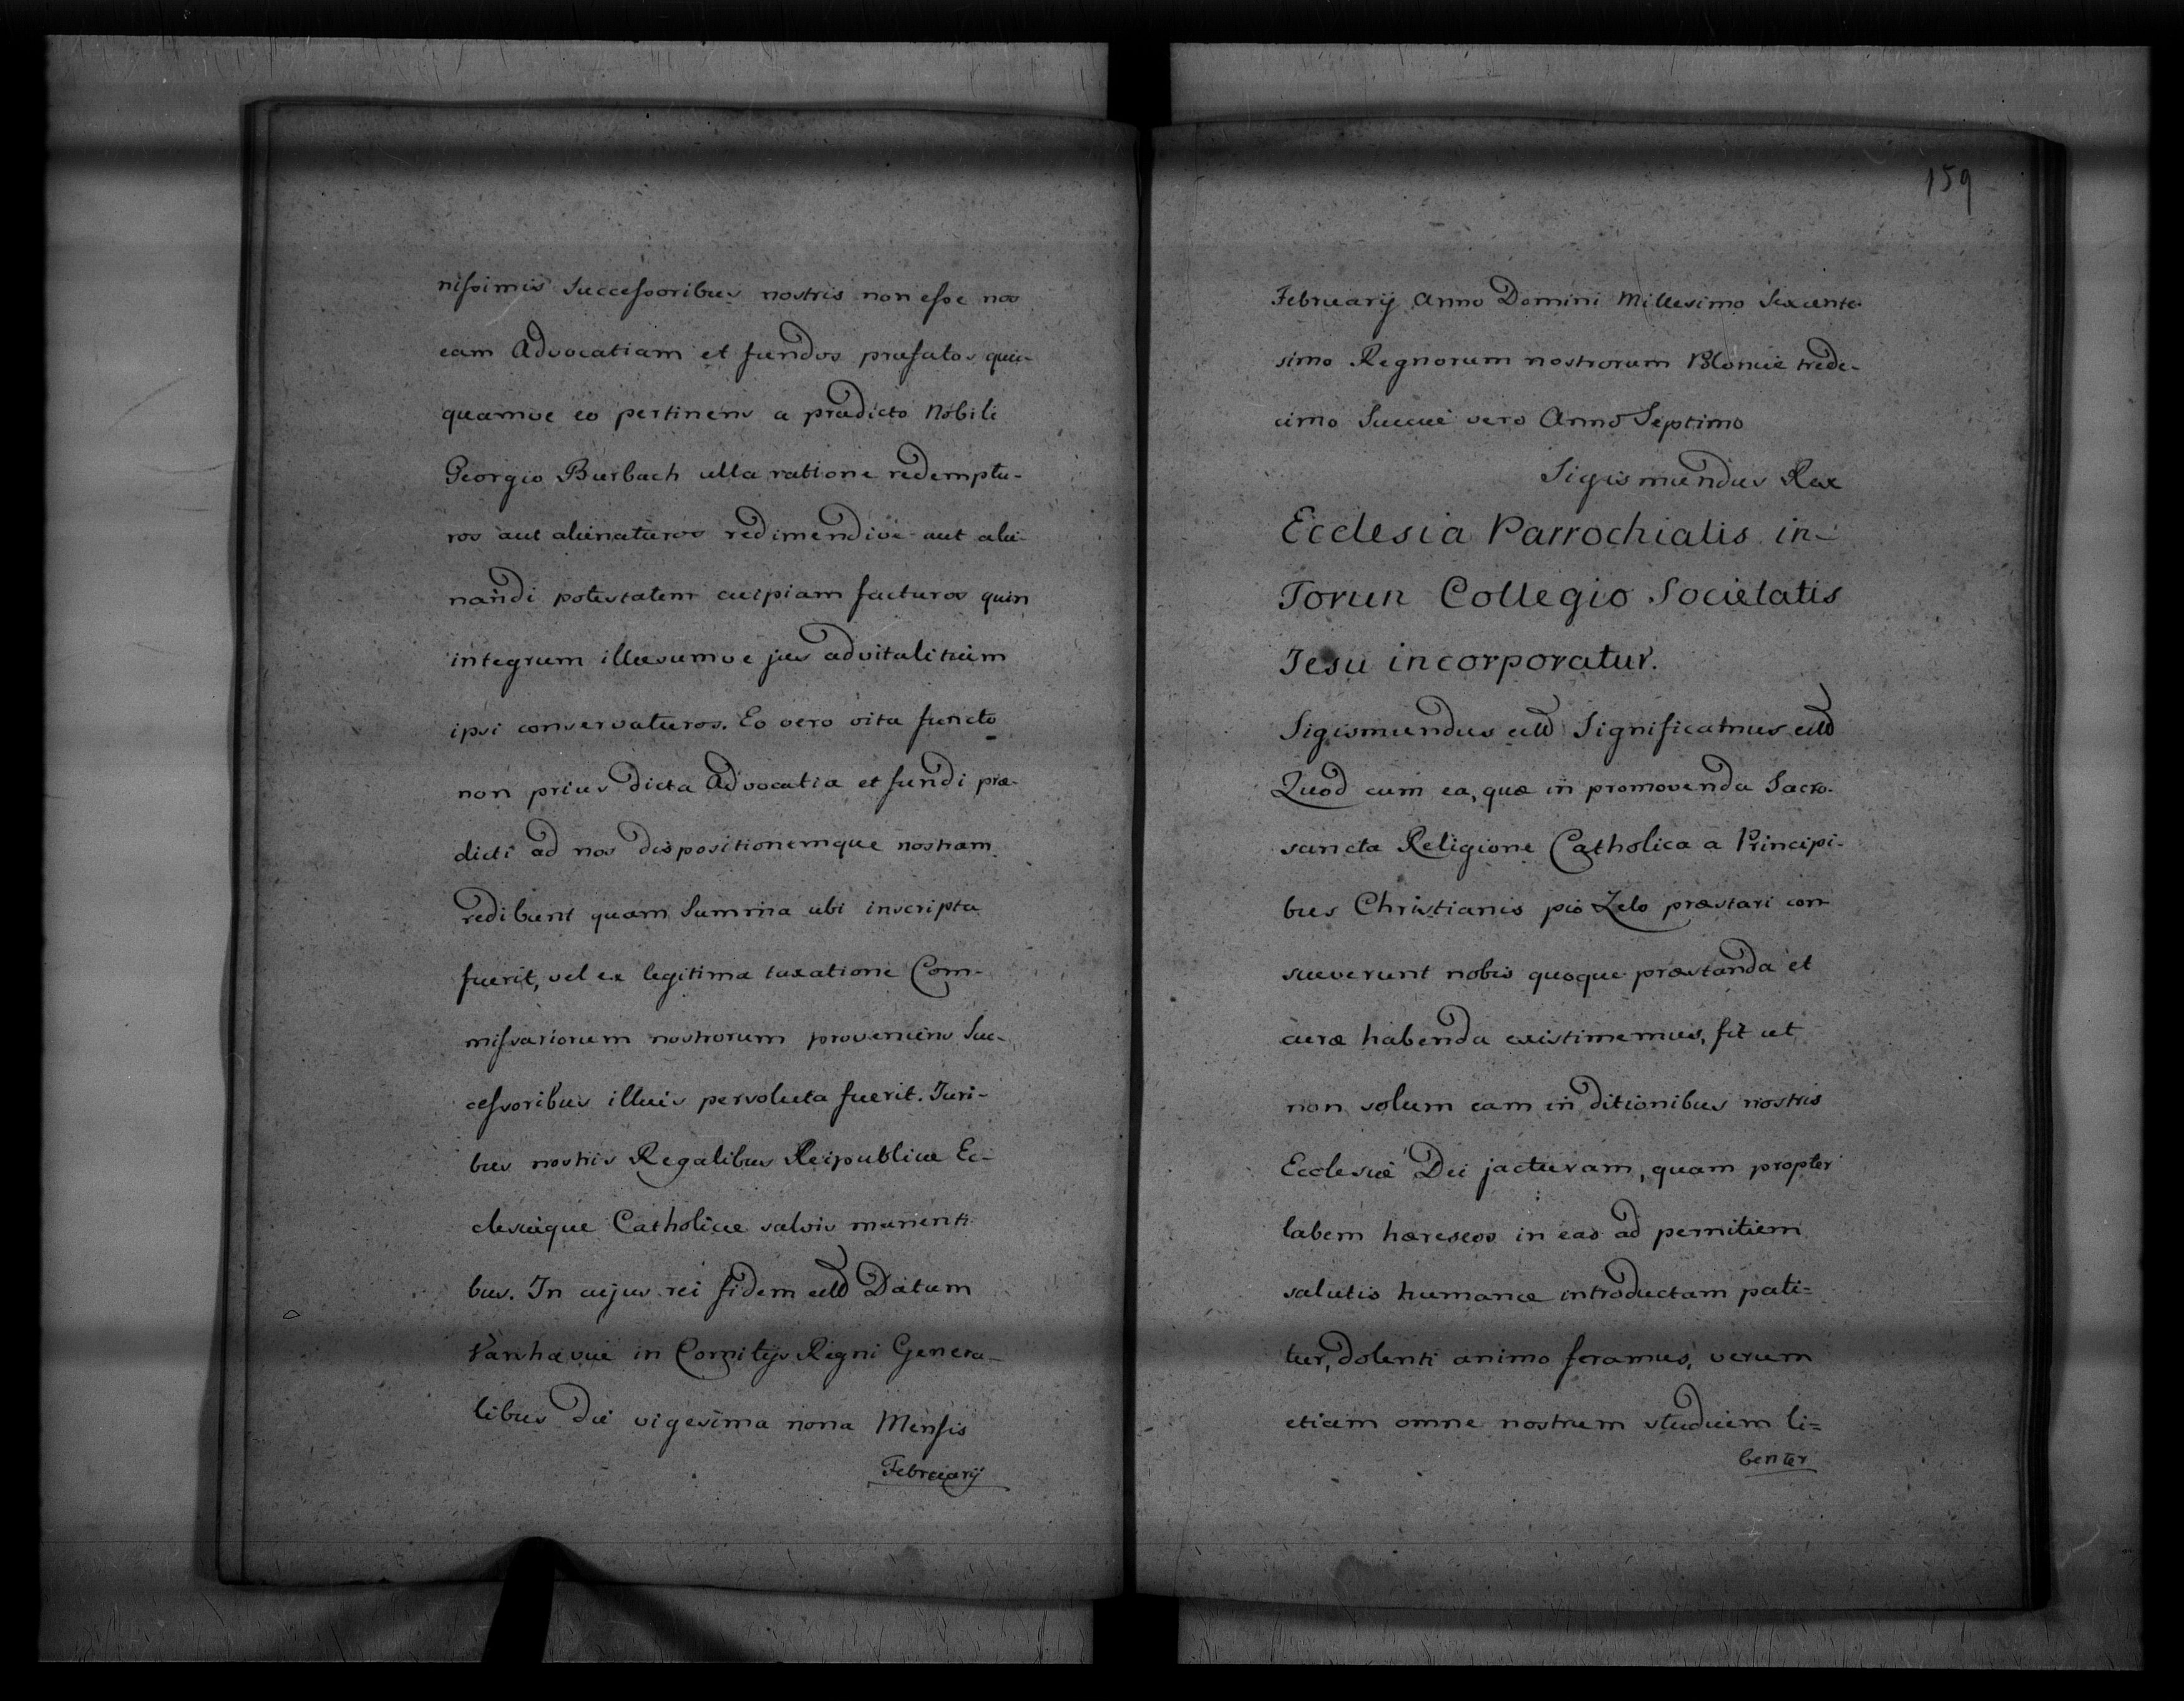 nissimis successoribus nostris non esse nos
eam Advocatiam et fundos præfatos quic-
quamve eo pertinens a prædicto Nobili
Georgio Burbach ulla ratione redemptu-
ros aut alienaturos redimendive aut alie-
nandi potestatem cuipiam facturos quin
integrum illæsumve jus advitalitium
ipsi conservaturos. Eo vero vita functo
non prius dicta Advocatia et fundi præ-
dicti ad nos dispositionemque nostram
redibunt quam Summa ubi inscripta
fuerit, vel ex legitima taxatione Com-
missariorum nostrorum proveniens Suc-
cessoribus illius persoluta fuerit. Juri-
bus nostris Regalibus Reipublicæ Ec-
clesiæque Catholicæ salvis manenti-
bus. In cujus rei fidem etc Datum
Varshaviæ in Comitijs Regni Genera-
libus die vigesima nona Mensis
Februarij
159
Februarij Anno Domini Millesimo Sexcente-
simo Regnorum nostrorum Poloniæ trede-
cimo Sueciæ vero Anno Septimo
Sigismundus Rex
Ecclesia Parrochialis in-
Torun Collegio Societatis
Jesu incorporatur.
Sigismundus etc Significamus etc
Quod cum ea, quæ in promovenda Sacro-
sancta Religione Catholica a Principi-
bus Christianis pio Zelo præstari con-
sueverunt nobis quoque præstanda et
curæ habenda existimemus, fit ut
non solum eam in ditionibus nostris
Ecclesiæ Dei jacturam, quam propter
labem hæreseos in eas ad pernitiem
salutis humanæ introductam pati=
tur, dolenti animo feramus, verum
etiam omne nostrum studium li=
benter